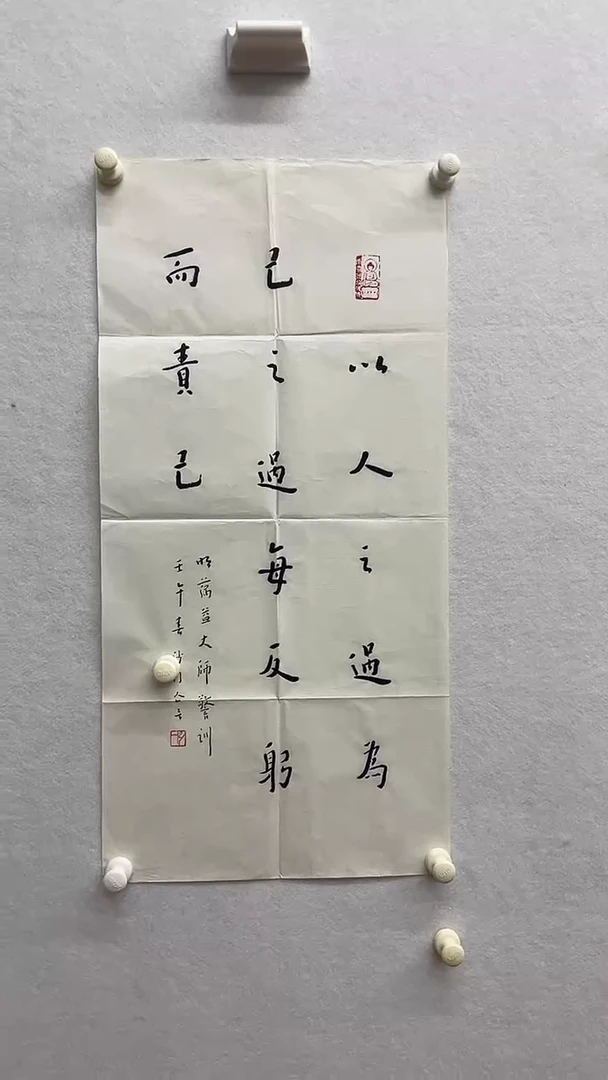 以人之過為
己之過每反躬
而責己
明蕅益大師警訓
壬午春